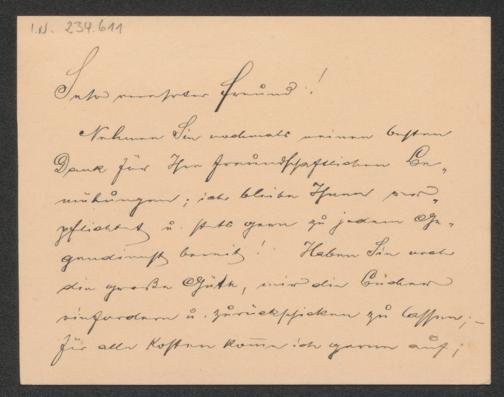 I.N. 234.611
Sehr verehrter Freund!
Nehmen Sie nochmals meinen besten
Dank für Ihre freundschaftlichen Be-
mühungen; ich bleibe Ihnen ver-
pflichtet u. stets gern zu jedem Ge-
gendienst bereit! Haben Sie noch
die große Güte, mir die Bücher
einfordern u. zurückschicken zu lassen; –
für alle Kosten komme ich gerne auf;